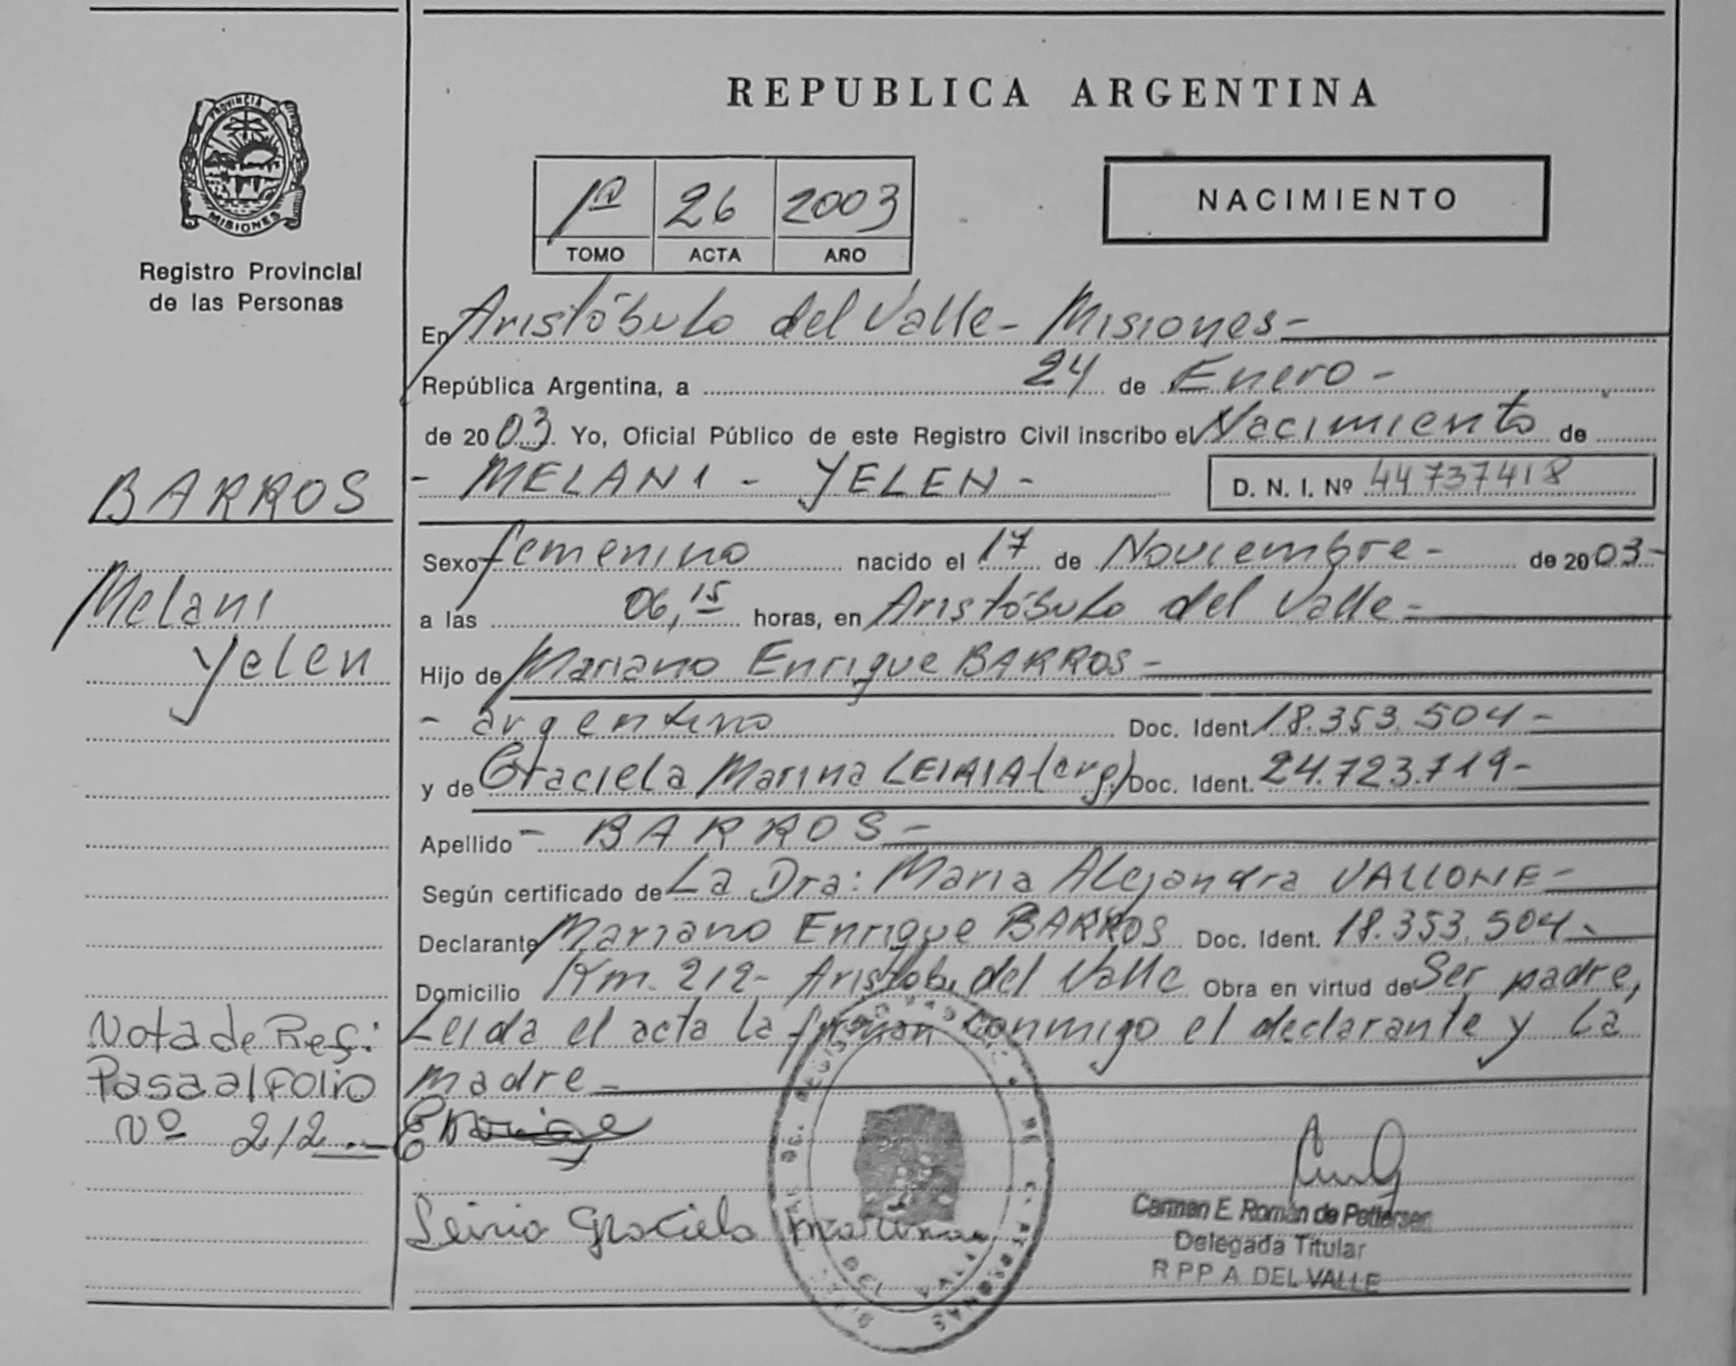 REPUBLICA ARGENTINA
PROVINCIA DE
MISIONES
Registro Provincial
de las Personas
1ª 26 2003
TOMO ACTA AÑO
NACIMIENTO
En Aristóbulo del Valle - Misiones -
República Argentina, a 24 de Enero -
de 2003. Yo, Oficial Público de este Registro Civil inscribo el Nacimiento de
- MELANI - YELEN - D. N. I. Nº 44737418
Sexo femenino nacido el 17 de Noviembre - de 2003 -
a las 06,15 horas, en Aristóbulo del Valle -
Hijo de Mariano Enrique BARROS -
- argentino Doc. Ident. 18.353.504 -
y de Graciela Marina (arg) Doc. Ident. 24.723.719 -
Apellido - BARROS -
Según certificado de La Dra: Maria Alejandra VALLONE -
Declarante Mariano Enrique BARROS Doc. Ident. 18.353.504 -
Domicilio Km. 212 - Aristobu del Valle Obra en virtud de Ser padre,
Leida el acta la firman conmigo el declarante y la
madre -
BARROS
Melani
Yelen
Nota de Reg:
Pasa al Folio
Nº 212
Graciela Marina
Carmen E. Román de Pettersen
Delegada Titular
R P P A DEL VALLE